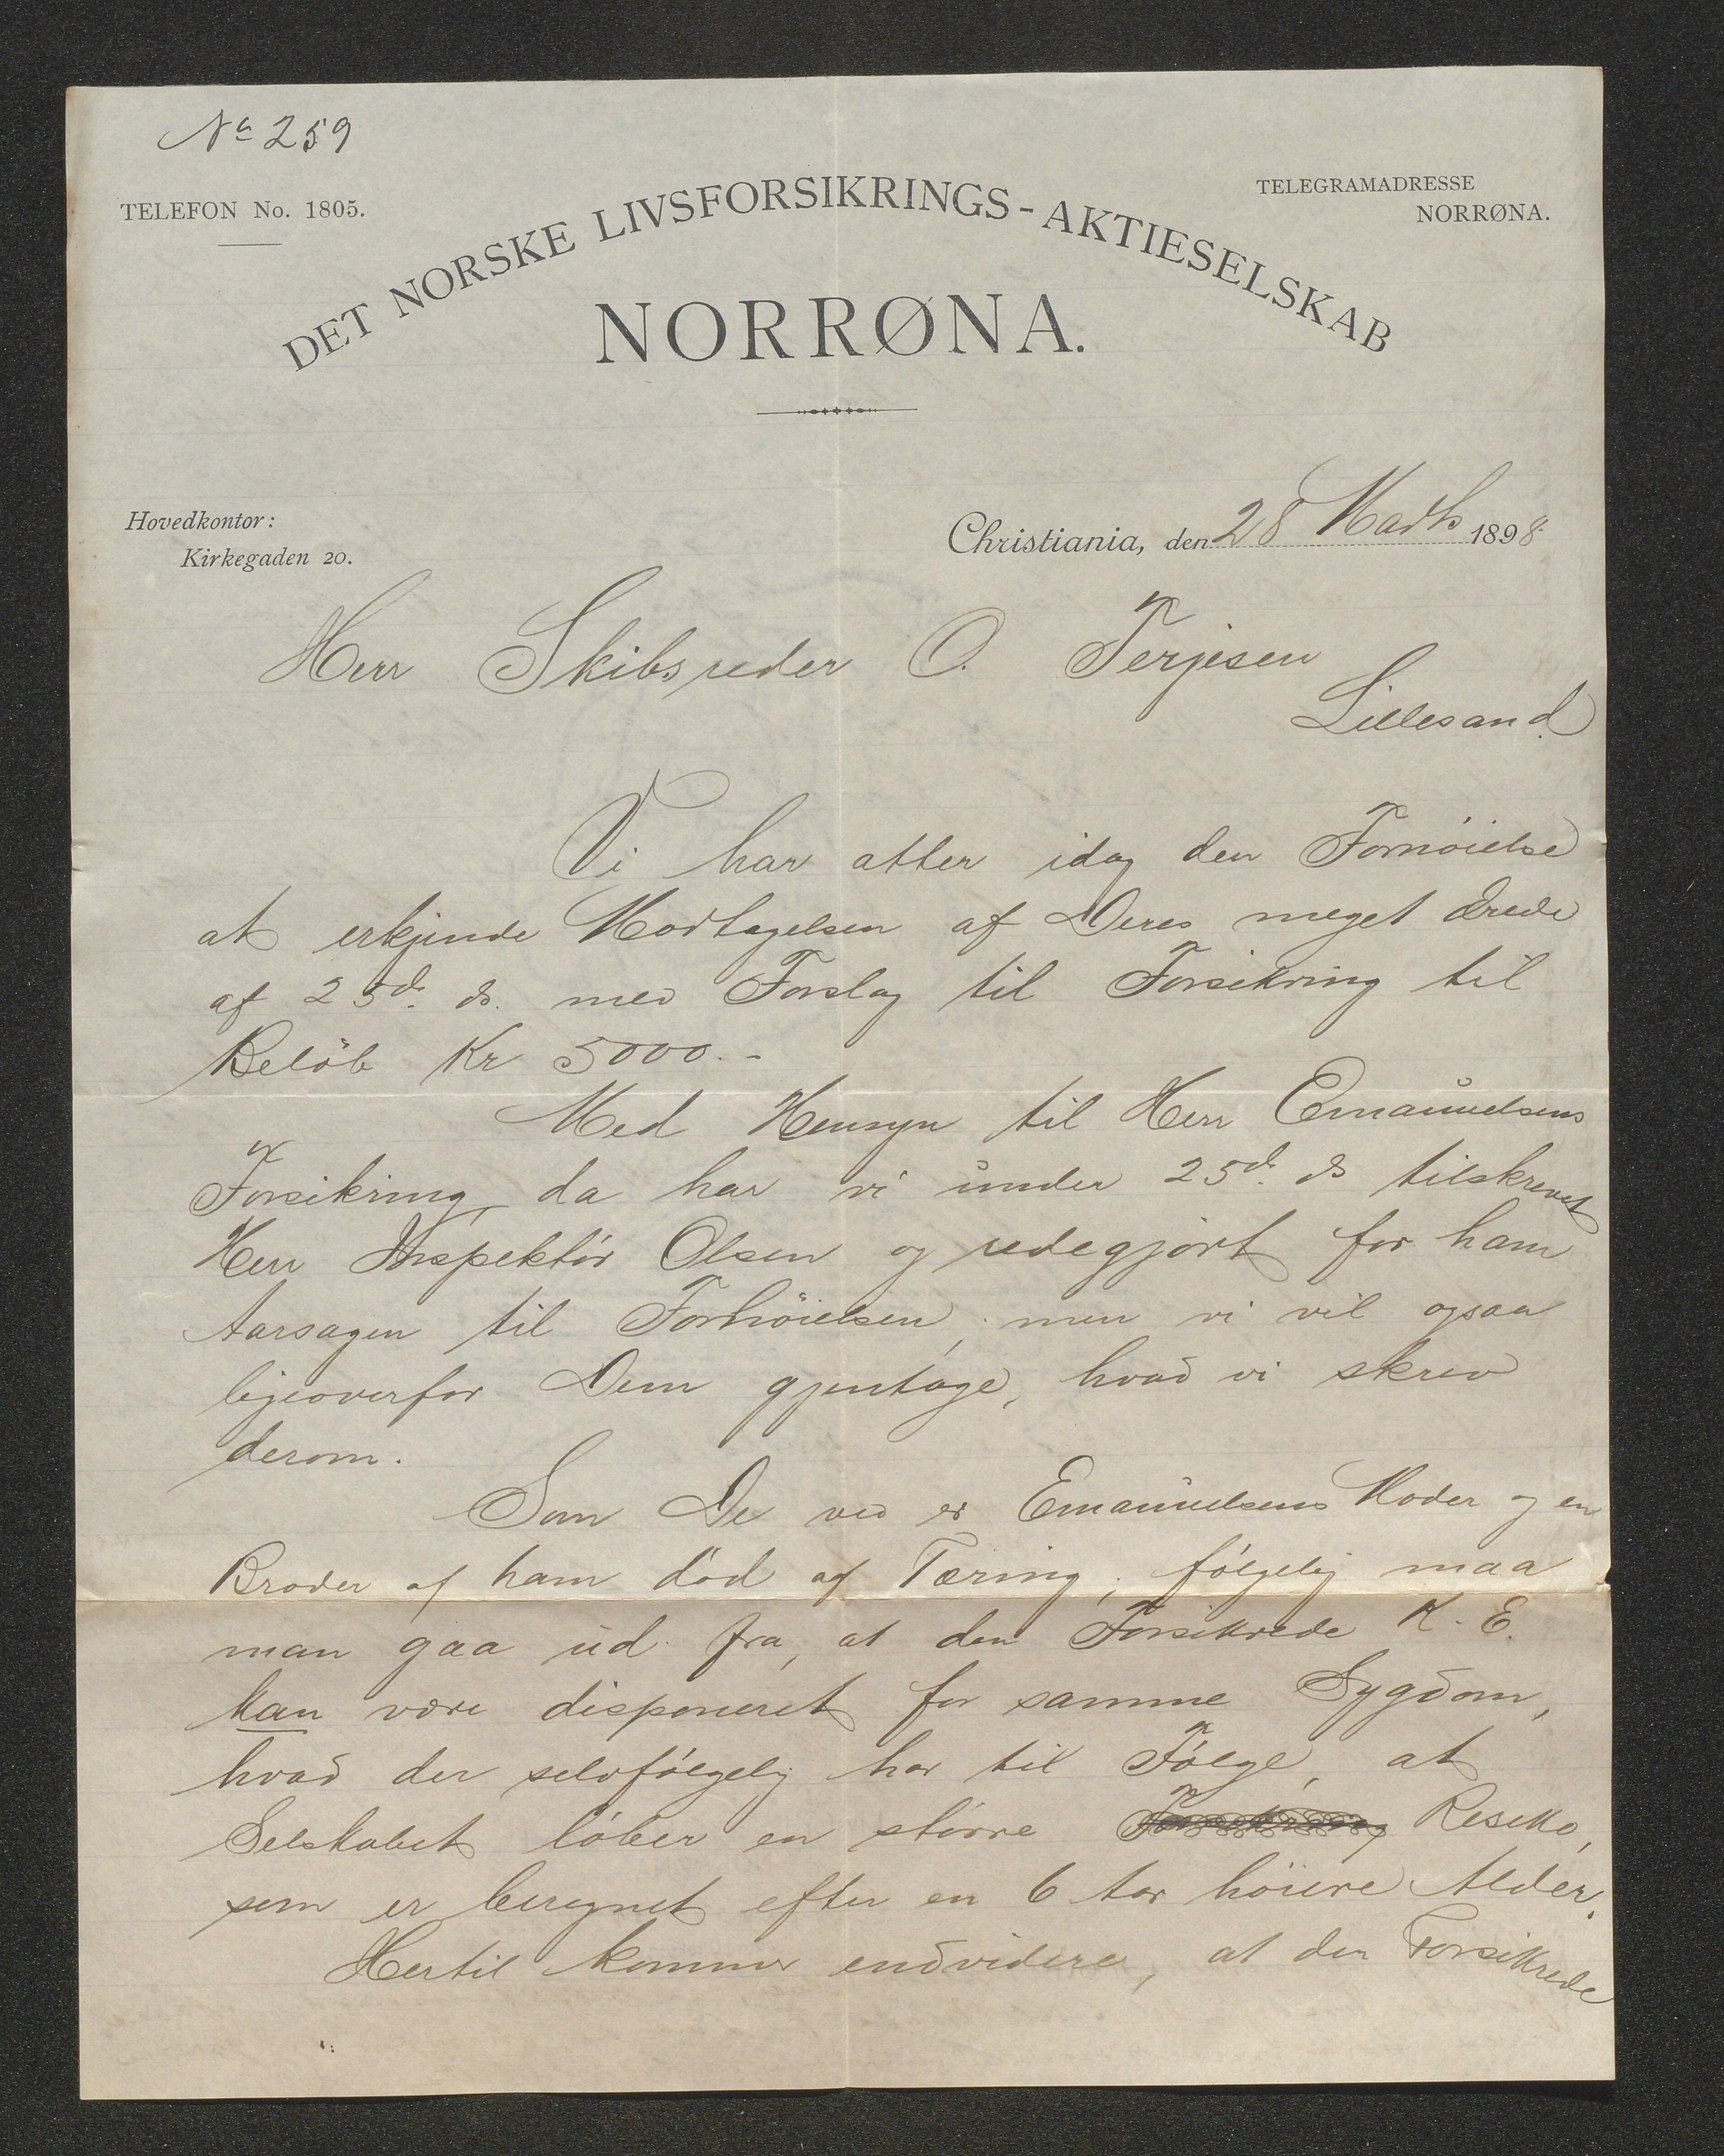 No 259
TELEFON No. 1805.
TELEGRAMADRESSE
NORRØNA.
DET NORSKE LIVSFORSIKRINGS-AKTIESELSKAB
NORRØNA.
Hovedkontor:
Kirkegaden 20.
Christiania, den 28 Marts 1898.
Herr Skibsreder O. Terjesen
Lillesand.
Vi har atter idag den Fornöielse
at erkjende Modtagelsen af Deres meget ærede
af 25d. ds. med Forslag til Forsikring til
Belöb Kr 5000.-
Med Hensyn til Herr Emanuelsens
Forsikring, da har vi under 25d. ds tilskrevet
Herr Inspektör Olsen og redegjort for ham
Aarsagen til Forhöielsen, men vi vil ogsaa
ligeoverfor Dem gjentage, hvad vi skrev
derom.
Som De ved er Emanuelsens Moder og en
Broder af ham död af Tæring, fölgelig maa
man gaa ud fra, at den Forsikrede K. E.
kan være disponeret for samme Sygdom,
hvad der selvfölgelig har til Fölge, at
Selskabet löber en större Resiko,
som er beregnet efter en 6 Aar höiere Alder.
Hertil kommer endvidere, at den Forsikrede